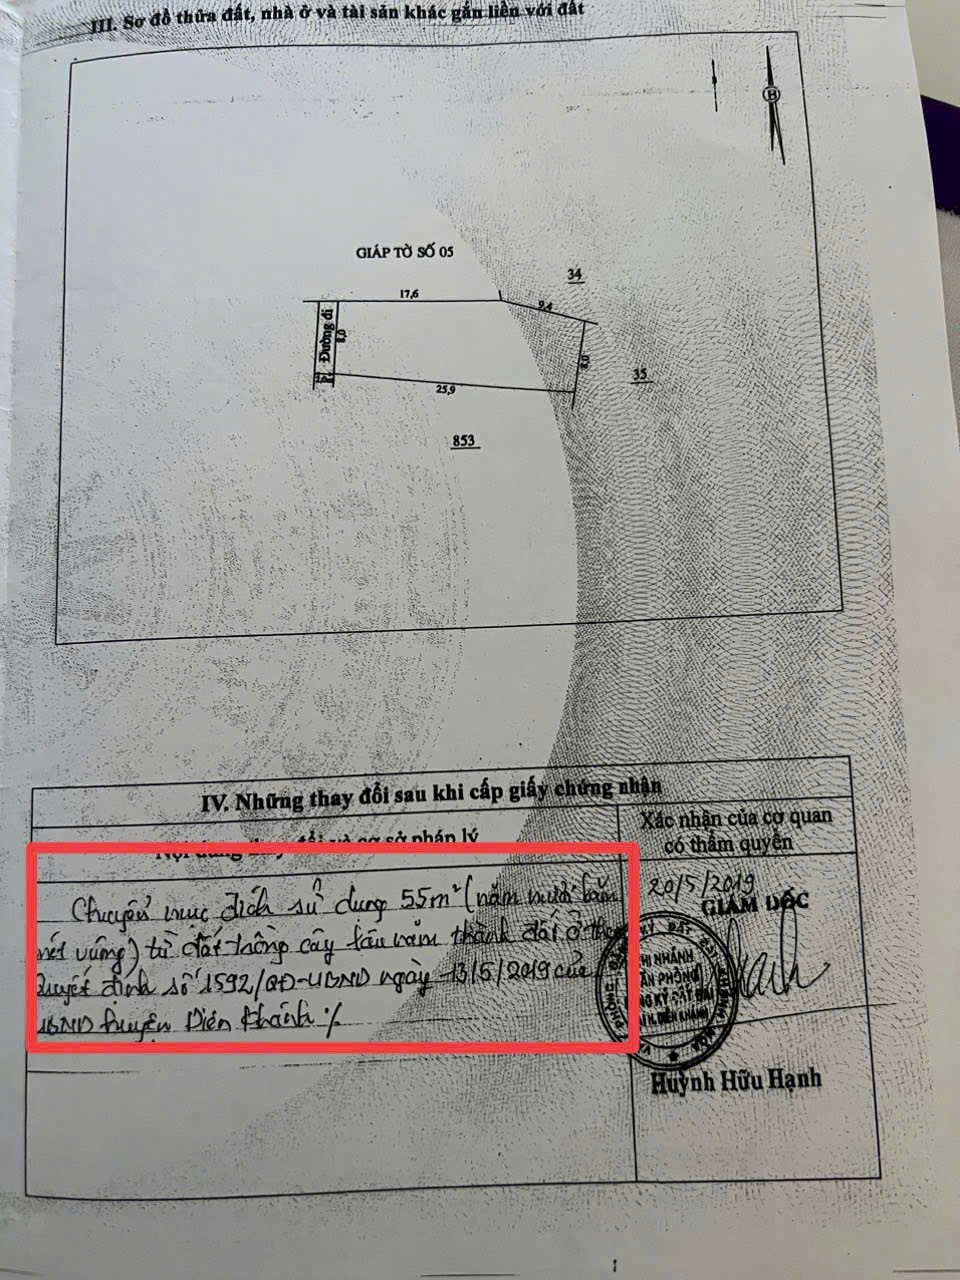 III. Sơ đồ thửa đất, nhà ở và tài sản khác gắn liền với đất
B
GIÁP TỜ SỐ 05
34
17,6
9,4
Đường đi
8,0
8,0
35
25,9
853
IV. Những thay đổi sau khi cấp giấy chứng nhận
và cơ sở pháp lý
Xác nhận của cơ quan
có thẩm quyền
Chuyển mục đích sử dụng 55m² (năm mươi lăm
mét vuông) từ đất trồng cây lâu năm thành đất ở theo
Quyết định số 1592/QĐ-UBND ngày 13/5/2019 của
UBND huyện Diên Khánh ./.
20/5/2019
GIÁM ĐỐC
CHI NHÁNH
VĂN PHÒNG
ĐĂNG KÝ ĐẤT ĐAI
H. DIÊN KHÁNH
Huỳnh Hữu Hạnh